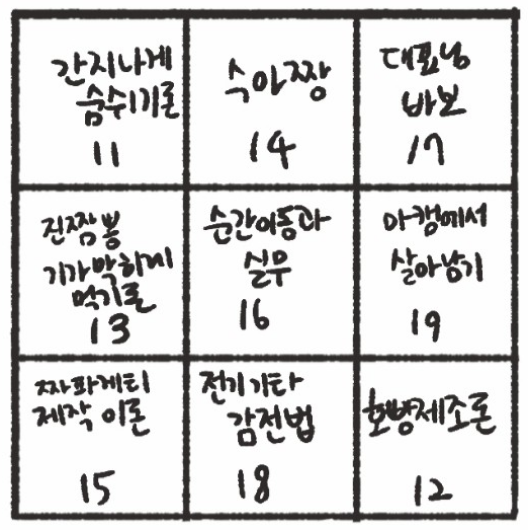 간지나게
숨쉬기론
11
수아짱
14
대표님
바보
17
진짬뽕
기가막히게
먹기론
13
순간이동과
실무
16
아캥에서
살아남기
19
짜파게티
제작 이론
15
전기기타
감전법
18
호빵제조론
12